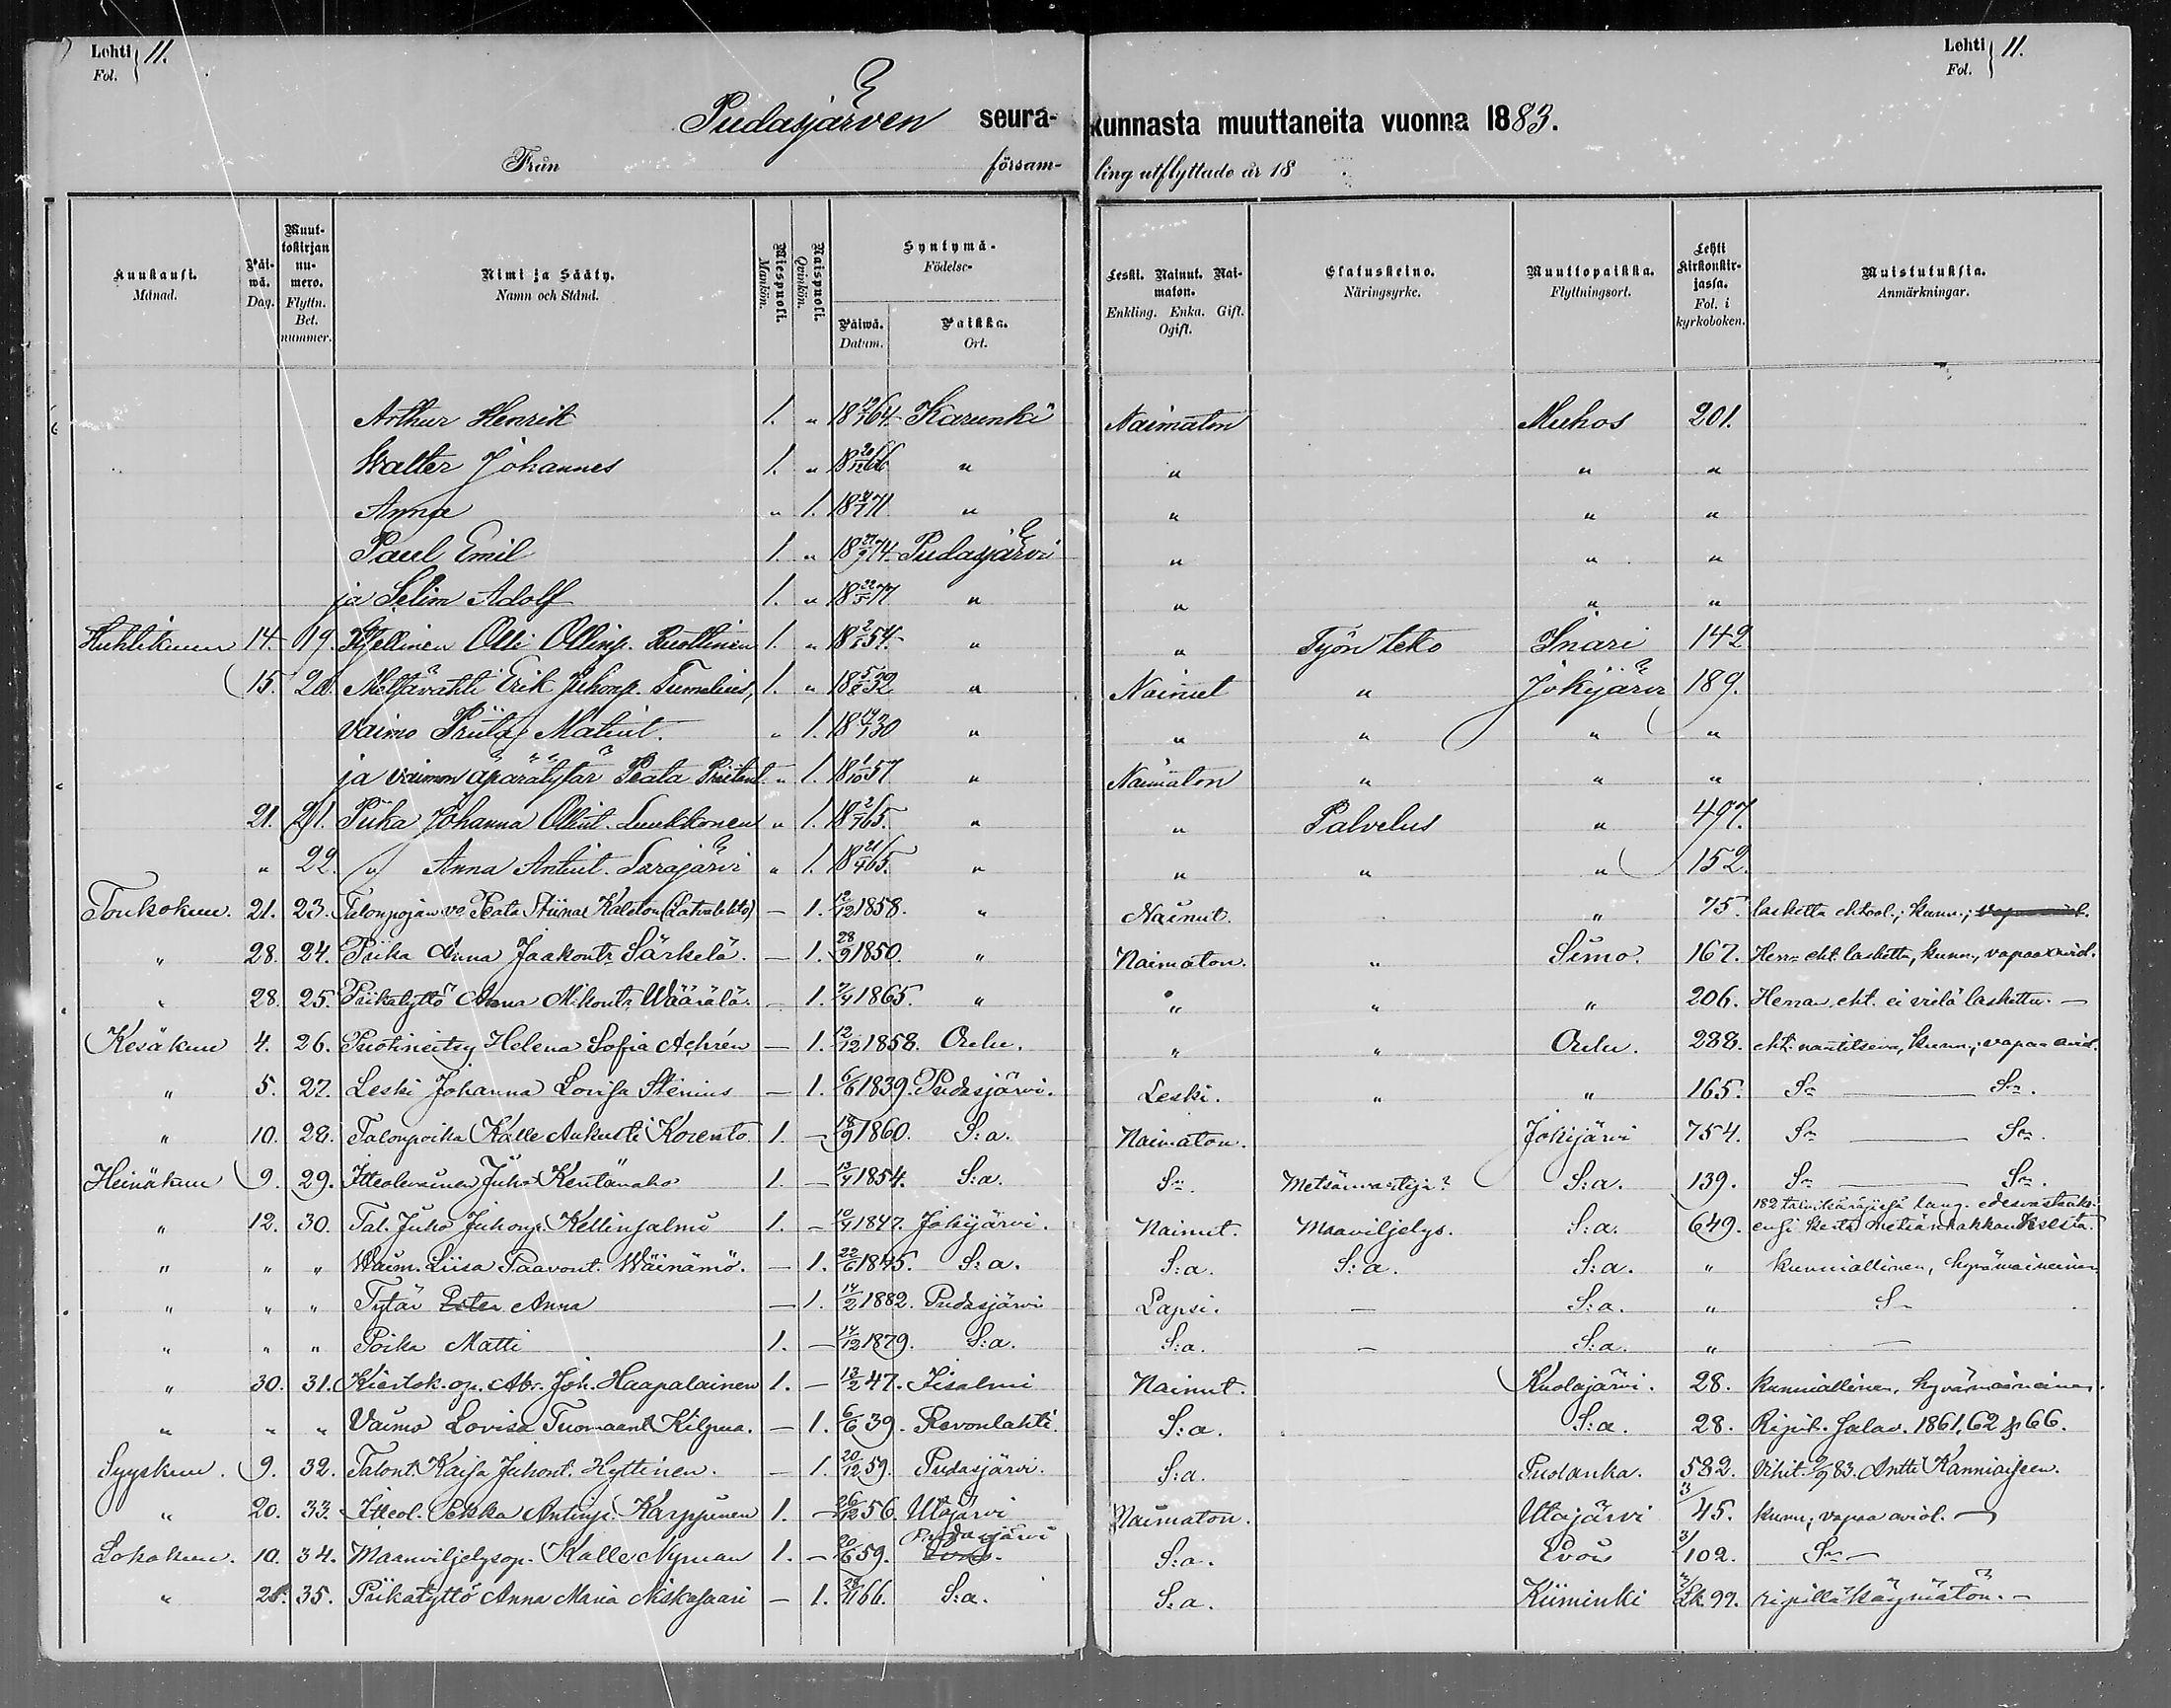 Lehti Fol. 11. Lehti Fol. 11.
Pudasjärven seura- kunnasta muuttaneita vuonna 1883.
Från försam- ling utflyttade år 18 .
Kuukausi. Månad. | Päiwä. Dag. | Muuttokirjan numero. Flyttn. Bet. nummer. | Nimi ja Sääty. Namn och Stånd. | Miespuoli. Mankön. | Naispuoli. Qvinkön. | Syntymä- Födelse- | Päiwä. Datum. | Paikka. Ort. | Leski. Nainut. Naimaton. Enkling. Enka. Gift. Ogift. | Elatuskeino. Näringsyrke. | Muuttopaikka. Flyttningsort. | Lehti Kirkonkirjassa. Fol. i kyrkoboken. | Muistutuksia. Anmärkningar.
Arthur Henrik 1. " 18 64 Karunki Naimaton Muhos 201.
Walter Johannes 1. " 18 66 " " " "
Anna " 1. 18 71 " " " "
Paul Emil 1. " 18 27/9 74. Pudasjärvi " " "
ja Selim Adolf 1. " 18 22/5 77 " " " "
Huhtikuun 14. 19. Olli Ollinp. 1. " 18 54. " " Työn teko Inari 142
15. 20. Erik Juhonp. 1. " 18 32 " Nainut " Jokijärvi 189.
Vaimo Priita Matint. " 1. 18 30 " " " " "
ja vaimon äpärätytär Peata Priitant. " 1. 18 1/10 57 " Naimaton " " "
21. 21. Piika Johanna Ollint. Luukkonen " 1. 18 65. " " Palvelus " 497.
" 22. " Anna Antint. Sarajärvi " 1. 18 21/4 65. " " " " 152.
Toukokuu. 21. 23. Talonpojan vo Peata Stiina Kalaton (Latvalehto) — 1. 12/12 1858. " Nainut. " 75.
" 28. 24. Piika Anna Jaakontr Särkelä. — 1. 28/9 1850. " Naimaton. " Simo. 167. vapaa aviol.
" 28. 25. Piikatyttö Anna Mikontr. Wäärälä. — 1. 2/4 1865. " " " " 206. Herran eht. ei vielä laskettu. —
Kesäkuu 4. 26. Helena Sofia Achrén — 1. 12/12 1858. Oulu. " " Oulu. 288. eht. nautitseva, kunn.; vapaa aviol.
" 5. 27. Leski Johanna Lovisa Stenius — 1. 6/6 1839. Pudasjärvi. Leski. " " 165. Sn — Sn.
" 10. 28. Talonpoika Kalle Aukusti Korento 1. — 18/9 1860. S:a. Naimaton. Jokijärvi 754. Sn — Sn.
Heinäkuu 9. 29. Itteolevainen Juho Kentänaho 1. — 13/4 1854. S:a. Sn. Metsänvartija? S:a. 139. Sn — Sn.
" 12. 30. Tal. Juho Juhonp. Kellinsalmi 1. — 10/4 1847. Jokijärvi. Nainut. Maaviljelys. S:a. 649.
" " " Waim. Liisa Paavont. Wäinämö. — 1. 22/6 1845. S:a. S:a. S:a. S:a. " kunniallinen, hyvämaineinen
" " " Tytär Anna — 1. 14/2 1882. Pudasjärvi Lapsi. — S:a. " S—
" " " Poika Matti 1. — 14/12 1879. S:a. S:a. — S:a. " —
" 30. 31. Kiertok. op. Abr. Joh. Haapalainen 1. — 13/2 47. Iisalmi Nainut. Kuolajärvi. 28. kunniallinen, hyvämaineinen.
" " " Vaimo Lovisa Tuomaant. Kilpua. — 1. 6/6 39. Revonlahti. S:a. S:a. 28. Ripit. salav. 1861, 62 & 66.
Syyskuu. 9. 32. Talont. Kaisa Juhont. Hyttinen. — 1. 20/12 59. Pudasjärvi. S:a. Puolanka. 582. Vihit. 2/9 83. Antti Kanniaiseen.
" 20. 33. Itteol. Pekka Antinp. Karppinen 1. — 26/12 56. Utajärvi Naimaton. Utajärvi 3/45. kunn; vapaa aviol. —
Lokakuu. 10. 34. Maanviljelysop. Kalle Nyman 1. — 20/6 59. Pudasjärvi S:a. Evois 3/102. Sn —
" 28. 35. Piikatyttö Anna Maria Niskasaari — 1. 28/11 66. S:a. S:a. Kiiminki Lk. 99. ripillä käymätön. —